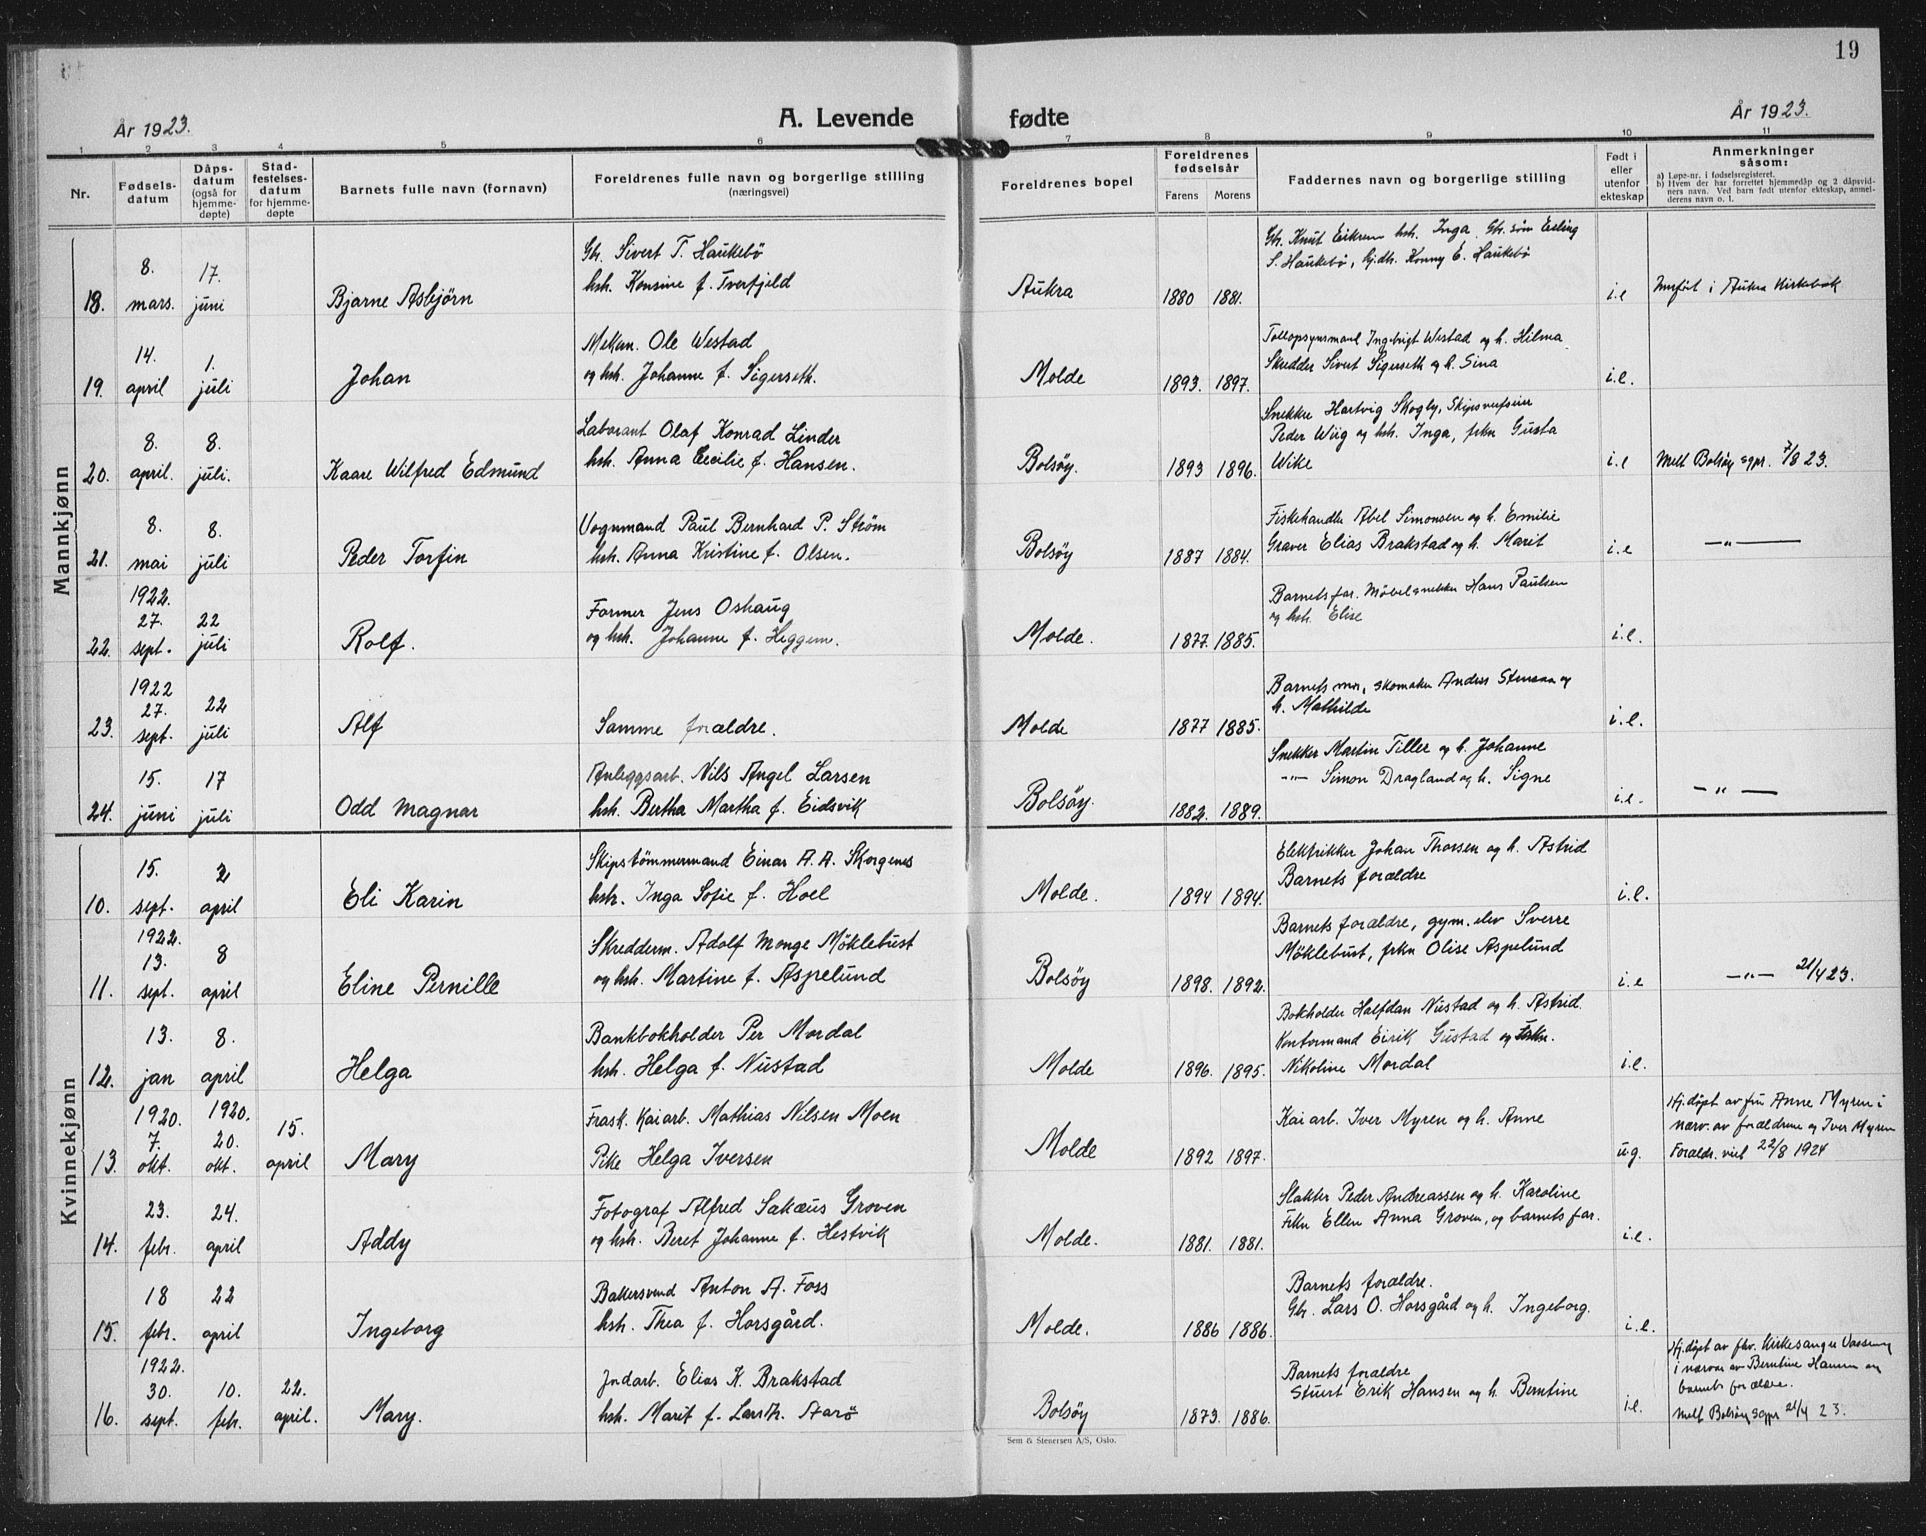 19
År 1923.
A. Levende fødte
År 1923.
1 2 3 4 5 6 7 8 9 10 11
Nr.
Fødsels-
datum
Dåps-
datum
(også for
hjemme-
døpte)
Stad-
festelses-
datum
for hjemme-
døpte
Barnets fulle navn (fornavn)
Foreldrenes fulle navn og borgerlige stilling
(næringsvei)
Foreldrenes bopel
Foreldrenes
fødselsår
Farens Morens
Faddernes navn og borgerlige stilling
Født i
eller
utenfor
ekteskap
Anmerkninger
såsom:
a) Løpe-nr. i fødselsregisteret.
b) Hvem der har forrettet hjemmedåp og 2 dåpsvid-
ners navn. Ved barn født utenfor ekteskap, anmel-
derens navn o. l.
Mannkjønn
18. 8. mars. 17. juni
Bjarne Asbjørn
Gbr. Sivert T. Haukebø
hsh. Konsine f. Tverfjeld
Aukra 1880 1881.
Gbr. Knut Eikrem hsh. Inga. Gbr. søn Erling
S. Haukebø, Gj.dtr. Konny E. Haukebø
i.e
Innført i Aukra Kirkebok
19. 14. april 1. juli
Johan
Mekan. Ole Westad
og hsh. Johanne f. Sigerseth.
Molde 1893. 1897.
Tollopsynsmand Ingebrigt Westad og h. Hilma
Skredder Sivert Sigerseth og h. Sina
i.e.
20. 8. april. 8. juli.
Kaare Wilfred Edmund
Laborant Olaf Konrad Linder
hsh. Anna Cecilie f. Hansen.
Bolsøy. 1893 1896.
Snekker Hartvig Skogly, Skipsverfseier
Peder Wiig og hsh. Inga, frkn Gusta
Wike
i.e
Melt Bolsøy sgpr. 7/8 23.
21. 8. mai 8. juli
Peder Torfin
Vognmand Paul Bernhard P. Strøm
hsh. Anna Kristine f. Olsen.
Bolsøy 1887 1884.
Fiskehandler Abel Simonsen og h. Emilie
Graver Elias Brakstad og h. Marit
i.e
—"—
22. 1922. 27. sept. 22 juli
Rolf.
Former Jens Oshaug
og hsh. Johanne f. Heggem.
Molde. 1877. 1885.
Barnets far. Møbelsnekker Hans Paulsen
og hsh. Elise
i.e.
23. 1922 27. sept. 22 juli
Alf
Samme forældre.
Molde 1877 1885.
Barnets mor, skomaker Anders Stensaa og
h. Mathilde
i.e.
24. 15. juni 17 juli
Odd Magnar
Anleggsarb. Nils Angel Larsen
hsh. Bertha Martha f. Eidsvik
Bolsøy. 1882. 1889.
Snekker Martin Tiller og h. Johanne
—"— Simon Dragland og h. Signe
i.e.
—"—
Kvinnekjønn
10. 15. sept. 1922. 2 april
Eli Karin
Skipstømmermand Einar A. A. Skorgenes
hsh. Inga Sofie f. Hoel
Molde. 1894 1894.
Elektrikker Johan Thorsen og h. Astrid
Barnets forældre
i.e.
11. 13. sept. 8 april
Eline Pernille
Skredderm. Adolf Monge Møklebust
og hsh. Martine f. Aspelund
Bolsøy 1898. 1892.
Barnets forældre, gym. elev Sverre
Møklebust, frkn Olise Aspelund
i.e
—"— 21/4 23.
12. 13. jan 8. april
Helga
Bankbokholder Per Mordal
hsh. Helga f. Nustad
Molde 1896. 1895.
Bokholder Halfdan Nustad og h. Astrid.
Kontormand Eirik Gustad og frkn.
Nikoline Mordal
i.e.
13. 1920. 7. okt. 1920. 20. okt. 15. april
Mary
Frask. Kaiarb. Mathias Nilsen Moen
Pike Helga Iversen
Molde 1892 1897.
Kaiarb. Iver Myren og h. Anne
u.g.
Hj.døpt av fru Anne Myren i
nærv. av forældrene og Iver Myren
Forældr. viet 22/8 1924
14. 23. febr. 24. april
Addy
Fotograf Alfred Sakæus Groven
og hsh. Beret Johanne f. Hestvik
Molde. 1881. 1881.
Slakter Peder Andreassen og h. Karoline
Frkn Ellen Anna Groven, og barnets far.
i.e.
15. 18 febr. 22 april
Ingeborg
Bakersvend Anton A. Foss
hsh. Thea f. Horsgård.
Molde. 1886 1886.
Barnets forældre.
Gbr. Lars O. Horsgård og h. Ingeborg.
i.e.
16. 1922. 30. sept. 10. febr. 22. april.
Mary.
Jordarb. Elias K. Brakstad
hsh. Marit f. Larsth. Aarø
Bolsøy 1873. 1886.
Barnets forældre
Stuert Erik Hansen og h. Berntine
i.e.
Hj.døpt av fhv. Kirkesanger
i nærvær av Berntine Hansen og
barnets forældre.
Melt Bolsøy sgpr 21/4 23.
Sem & Stenersen A/S, Oslo.